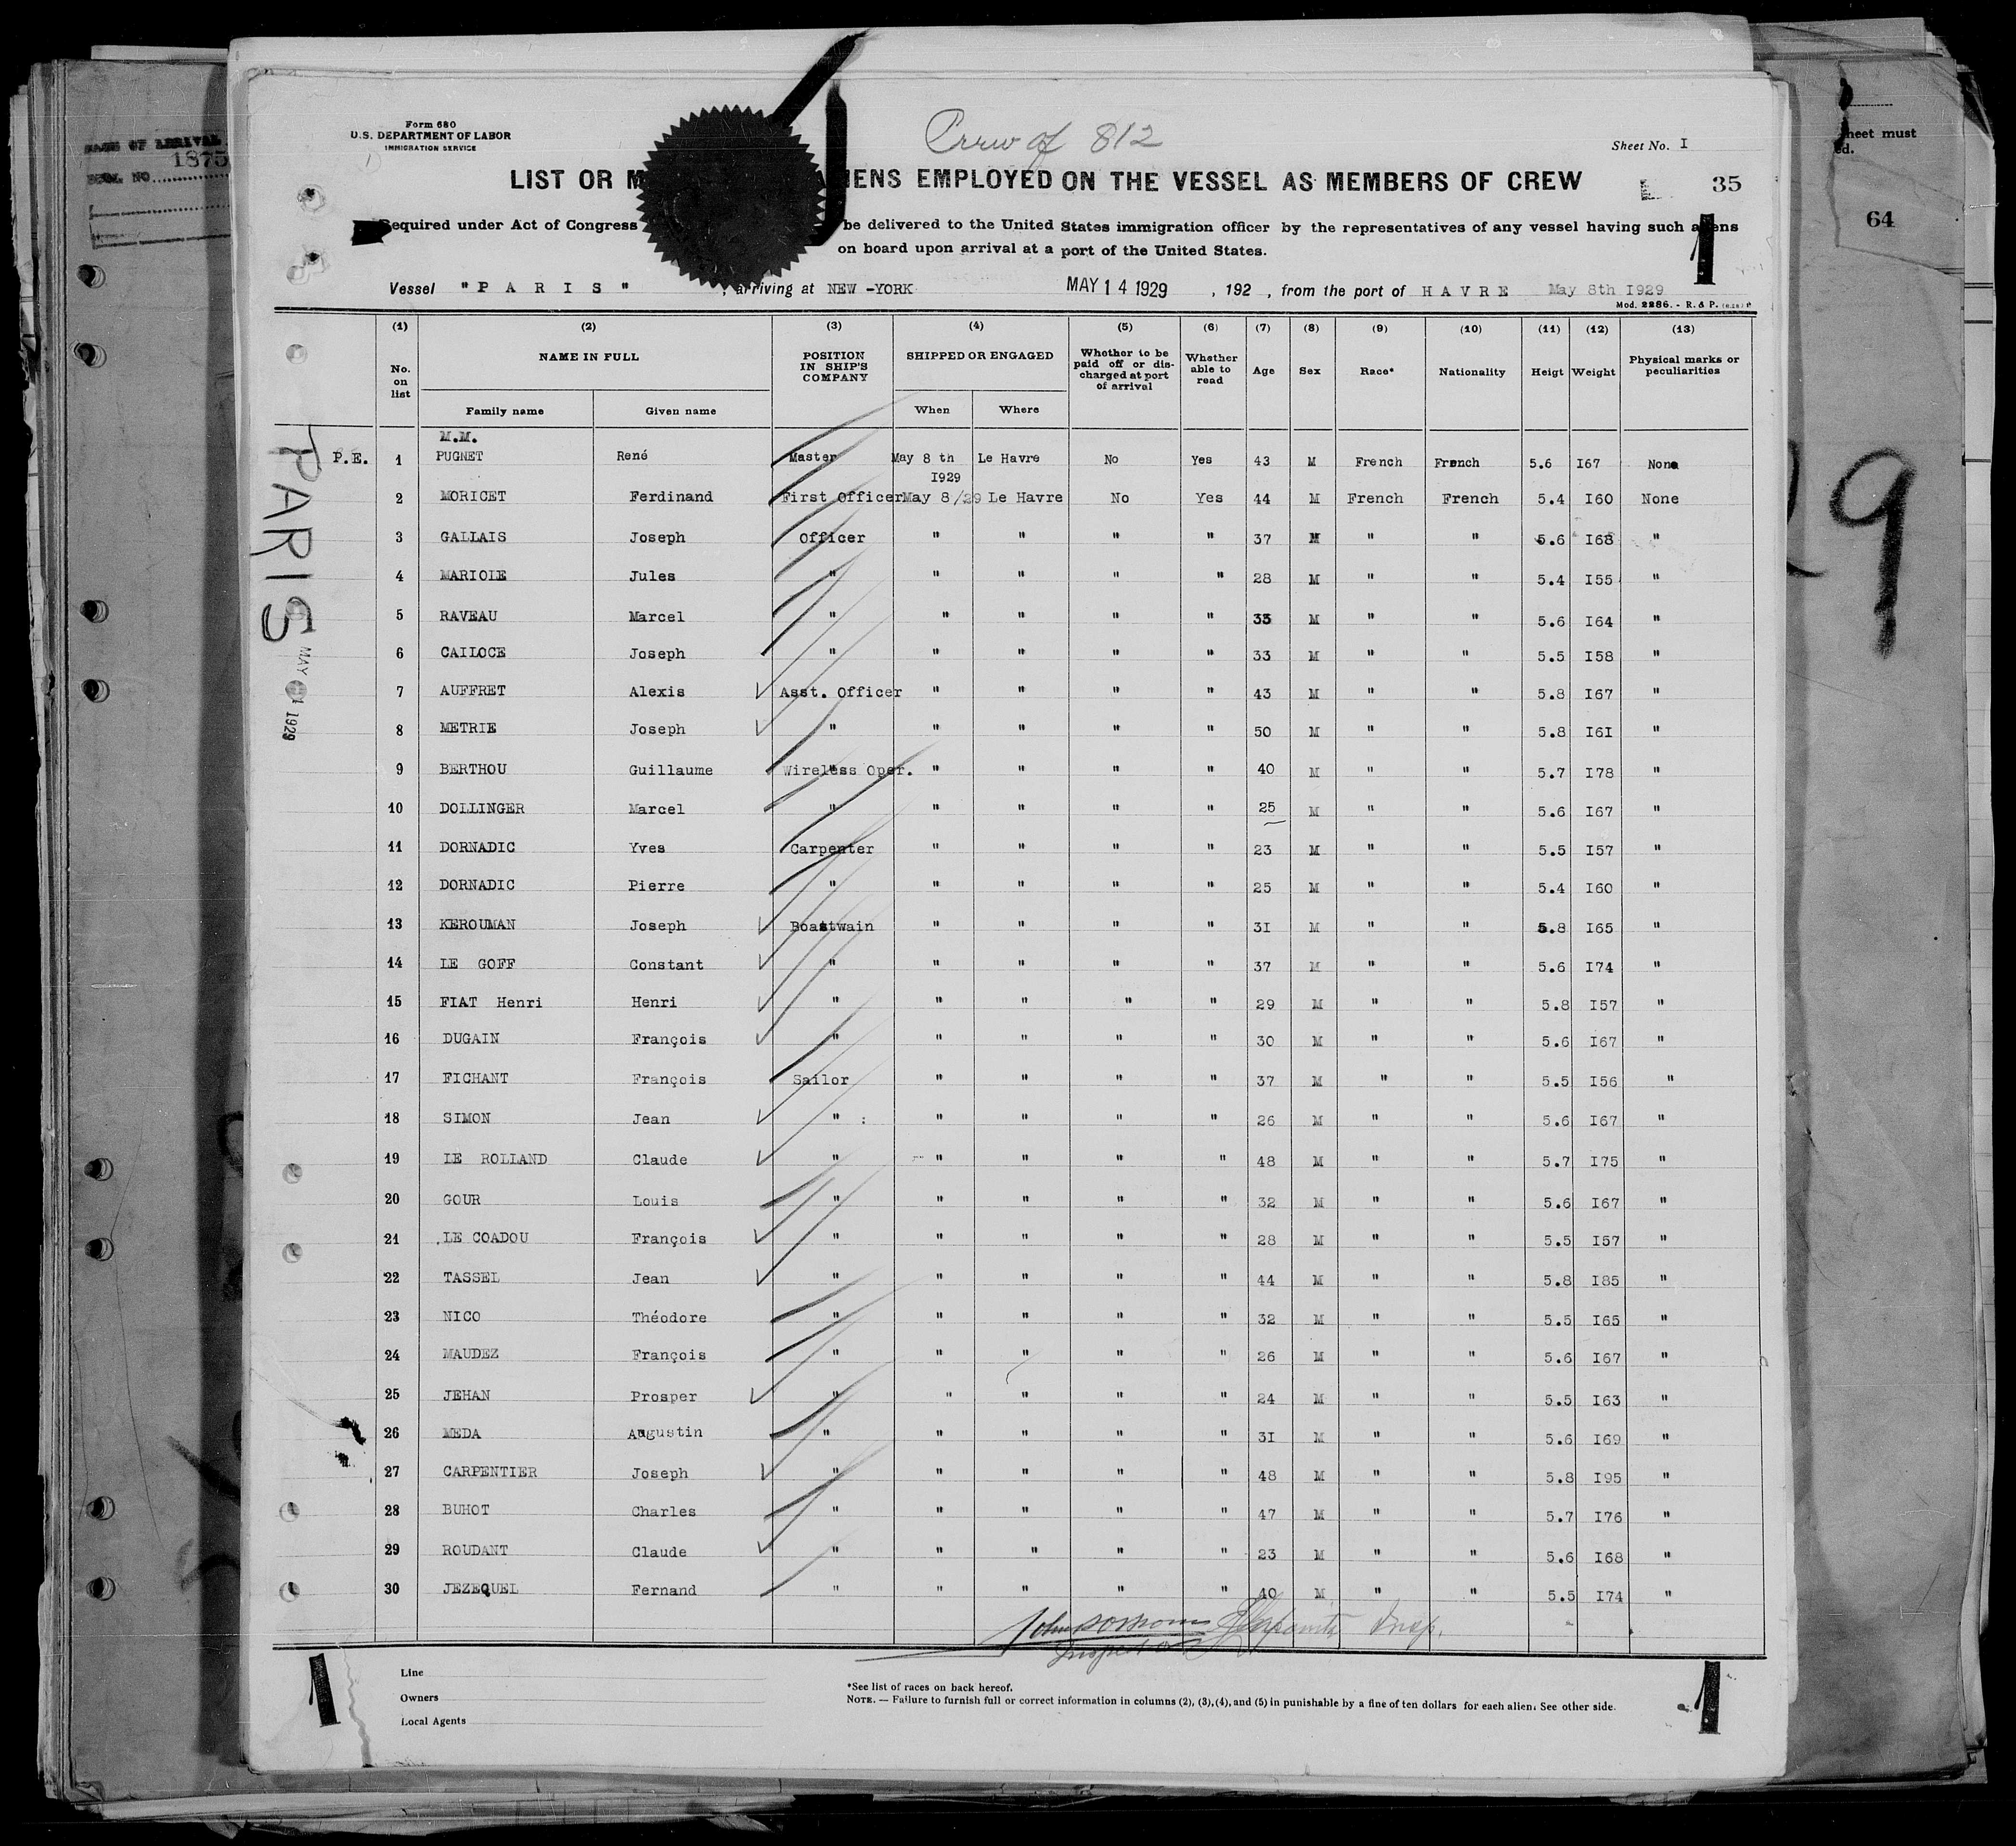 Form 680
U.S. DEPARTMENT OF LABOR
IMMIGRATION SERVICE
Crew of 812
Sheet No. I
LIST OR M IENS EMPLOYED ON THE VESSEL AS MEMBERS OF CREW
35
64
heet must
ed.
1875
Required under Act of Congress be delivered to the United States immigration officer by the representatives of any vessel having such aliens
on board upon arrival at a port of the United States.
Vessel "PARIS", arriving at NEW-YORK MAY 14 1929, 192 , from the port of HAVRE May 8th I929
Mod. 2286. - R. & P.
(1) (2) (3) (4) (5) (6) (7) (8) (9) (10) (11) (12) (13)
No. on list NAME IN FULL POSITION IN SHIP'S COMPANY SHIPPED OR ENGAGED Whether to be paid off or discharged at port of arrival Whether able to read Age Sex Race* Nationality Heigt Weight Physical marks or peculiarities
Family name Given name When Where
M.M.
P.E. 1 PUGNET René Master May 8 th I929 Le Havre No Yes 43 M French French 5.6 I67 None
2 MORICET Ferdinand First Officer May 8/29 Le Havre No Yes 44 M French French 5.4 I60 None
3 GALLAIS Joseph Officer " " " " 37 M " " 5.6 I68 "
4 MARIOLE Jules " " " " " 28 M " " 5.4 I55 "
5 RAVEAU Marcel " " " " " 33 M " " 5.6 I64 "
6 CAILOCE Joseph " " " " " 33 M " " 5.5 I58 "
7 AUFFRET Alexis Asst. Officer " " " " 43 M " " 5.8 I67 "
8 METRIE Joseph " " " " " 50 M " " 5.8 I6I "
9 BERTHOU Guillaume Wireless Oper. " " " " 40 M " " 5.7 I78 "
10 DOLLINGER Marcel " " " " " 25 M " " 5.6 I67 "
11 DORNADIC Yves Carpenter " " " " 23 M " " 5.5 I57 "
12 DORNADIC Pierre " " " " " 25 M " " 5.4 I60 "
13 KEROUMAN Joseph Boastwain " " " " 3I M " " 5.8 I65 "
14 LE GOFF Constant " " " " " 37 M " " 5.6 I74 "
15 FIAT Henri Henri " " " " " 29 M " " 5.8 I57 "
16 DUGAIN François " " " " " 30 M " " 5.6 I67 "
17 FICHANT François Sailor " " " " 37 M " " 5.5 I56 "
18 SIMON Jean " : " " " " 26 M " " 5.6 I67 "
19 LE ROLLAND Claude " " " " " 48 M " " 5.7 I75 "
20 GOUR Louis " " " " " 32 M " " 5.6 I67 "
21 LE COADOU François " " " " " 28 M " " 5.5 I57 "
22 TASSEL Jean " " " " " 44 M " " 5.8 I85 "
23 NICO Théodore " " " " " 32 M " " 5.5 I65 "
24 MAUDEZ François " " " " " 26 M " " 5.6 I67 "
25 JEHAN Prosper " " " " " 24 M " " 5.5 I63 "
26 MEDA Augustin " " " " " 3I M " " 5.6 I69 "
27 CARPENTIER Joseph " " " " " 48 M " " 5.8 I95 "
28 BUHOT Charles " " " " " 47 M " " 5.7 I76 "
29 ROUDANT Claude " " " " " 23 M " " 5.6 I68 "
30 JEZEQUEL Fernand " " " " " 40 M " " 5.5 I74 "
PARIS
MAY 14 1929
Insp.
Inspector
Line
Owners
Local Agents
*See list of races on back hereof.
NOTE. — Failure to furnish full or correct information in columns (2), (3), (4), and (5) in punishable by a fine of ten dollars for each alien. See other side.
1
1
1
9